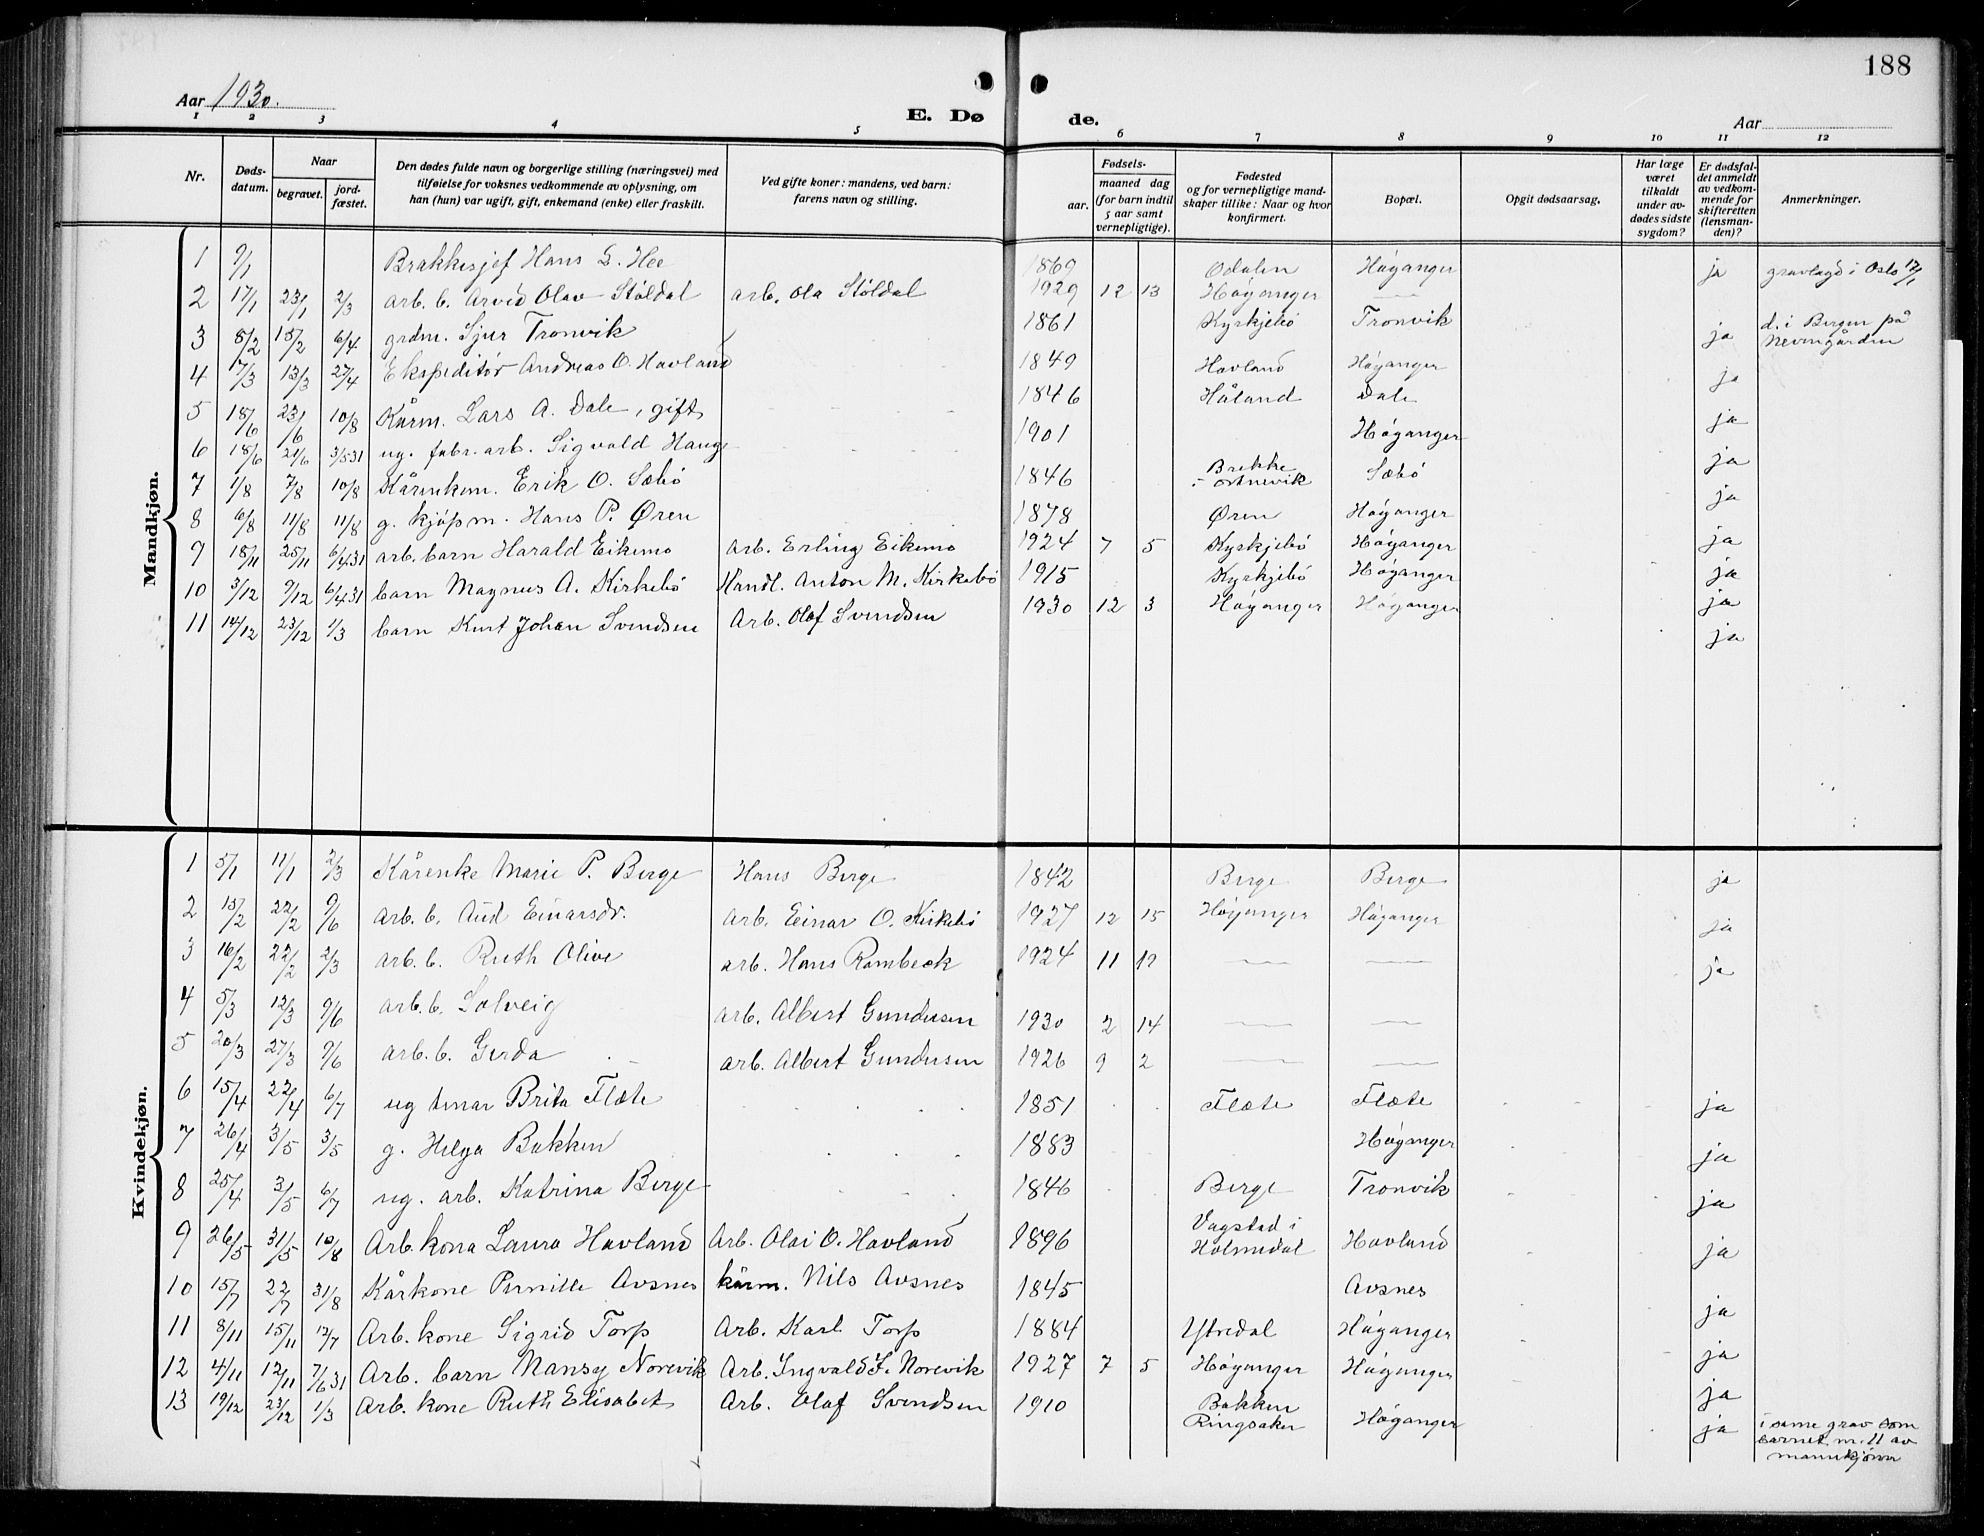 188
Aar 1930.
E. Døde.
Aar
1 2 3 4 5 6 7 8 9 10 11 12
Nr.
Døds-
datum.
Naar
begravet.
jord-
fæstet.
Den dødes fulde navn og borgerlige stilling (næringsvei) med
tilføielse for voksnes vedkommende av oplysning, om
han (hun) var ugift, gift, enkemand (enke) eller fraskilt.
Ved gifte koner: mandens, ved barn:
farens navn og stilling.
Fødsels-
aar.
maaned dag
(for barn indtil
5 aar samt
vernepligtige).
Fødested
og for vernepligtige mand-
skaper tillike: Naar og hvor
konfirmert.
Bopæl.
Opgit dødsaarsag.
Har læge
været
tilkaldt
under av-
dødes sidste
sygdom?
Er dødsfal-
det anmeldt
av vedkom-
mende for
skifteretten
(lensman-
den)?
Anmerkninger.
Mandkjøn.
1 9/1 Brakkesjef Hans G. Hee 1869 Odalen Høganger ja gravlagd i Oslo 17/1
2 17/1 23/1 2/3 arb. b. Arvid Olav Stöldal arb. Ola Stöldal 1929 12 13 Høganger —
3 8/2 15/2 6/4 grdm. Sjur Tronvik 1861 Kyrkjebó Tronvik ja d. i Bergen på
Nevengården
4 17/3 13/3 27/4 Ekspeditór Andreas O. Havland 1849 Havland Høganger ja
5 18/6 23/6 10/8 Kårm. Lars A. Dale, gift 1846 Håland Dale ja
6 18/6 21/6 3/5 31 ug. fabr. arb. Sigvald Hauge 1901 Høganger ja
7 1/8 7/8 10/8 Kårenkem. Erik O. Sæbó 1846 Brekke
Ortnevik Sæbó ja
8 6/8 11/8 11/8 g. kjópm. Hans P. Øren 1878 Øren Høganger ja
9 18/11 25/11 6/4 31 arb. barn Harald Eikemo Arb. Erling Eikemo 1924 7 5 Kyrkjebó Høganger ja
10 3/12 9/12 6/4 31 barn Magnus A. Kirkebó Handl. Anton M. Kirkebó 1915 Kyrkjebó Høganger ja
11 14/12 23/12 1/3 barn Kurt Johan Svendsen Arb. Olaf Svendsen 1930 12 3 Høganger Høganger ja
Kvindekjøn.
1 5/1 11/1 2/3 Kårenke Marie P. Berge Hans Berge 1842 Berge Berge ja
2 15/2 22/2 9/6 arb. b. Aud Einarsdr. arb. Einar O. Kirkebó 1927 12 15 Høganger Høganger ja
3 16/2 22/2 2/3 arb. b. Ruth Olive arb. Hans Rambeck 1924 11 19 — — ja
4 5/3 12/3 9/6 arb. b. Solveig arb. Albert Gundersen 1930 2 14 — —
5 20/3 27/3 9/6 arb. b. Gerda arb. Albert Gundersen 1926 9 2 — —
6 15/4 22/4 6/7 ug tenar Brita Flæte 1851 Flæte Flæte ja
7 26/4 3/5 3/5 g. Helga Bakken 1883 Høganger ja
8 25/4 3/5 6/7 ug. arb. Katrina Berge 1846 Berge Tronvik ja
9 26/5 31/5 10/8 Arb. kona Laura Havland Arb. Olai O. Havland 1896 Vagstad i
Holmedal Havland ja
10 15/7 22/7 31/8 Kårkone Pernille Avsnes kårm. Nils Avsnes 1845 Avsnes ja
11 8/11 15/11 12/7 Arb. kone Sigrid Torp Arb. Karl Torp 1884 Ytredal Høganger ja
12 4/11 12/11 7/6 31 Arb. barn Nansy Norevik Arb. Ingvald Norevik 1927 7 5 Høganger Høganger ja
13 19/12 23/12 1/3 Arb. kone Ruth Elisabet Arb. Olaf Svendsen 1910 Bakken
Ringsaker Høganger ja i same grav som
barnet nr. 11 av
mannkjønn